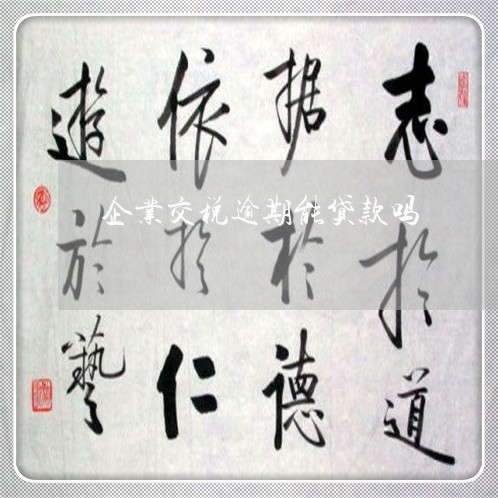 志於道
据於德
依於仁
遊於藝
企業交税逾期能貸款吗